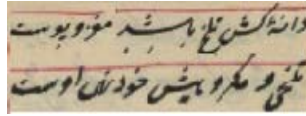 دانهٔ کش تلخ باشد مغز و پوست
تلخی و مکروهیش خود نهی اوست